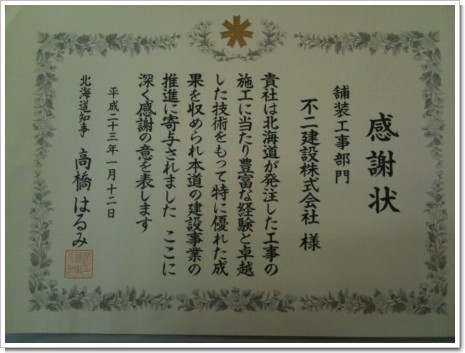 感謝状
舗装工事部門
不二建設株式会社 様
貴社は北海道が発注した工事の
施工に当たり豊富な経験と卓越
した技術をもって特に優れた成
果を収められ本道の建設事業の
推進に寄与されました ここに
深く感謝の意を表します
平成二十三年一月十二日
北海道知事 高橋はるみ